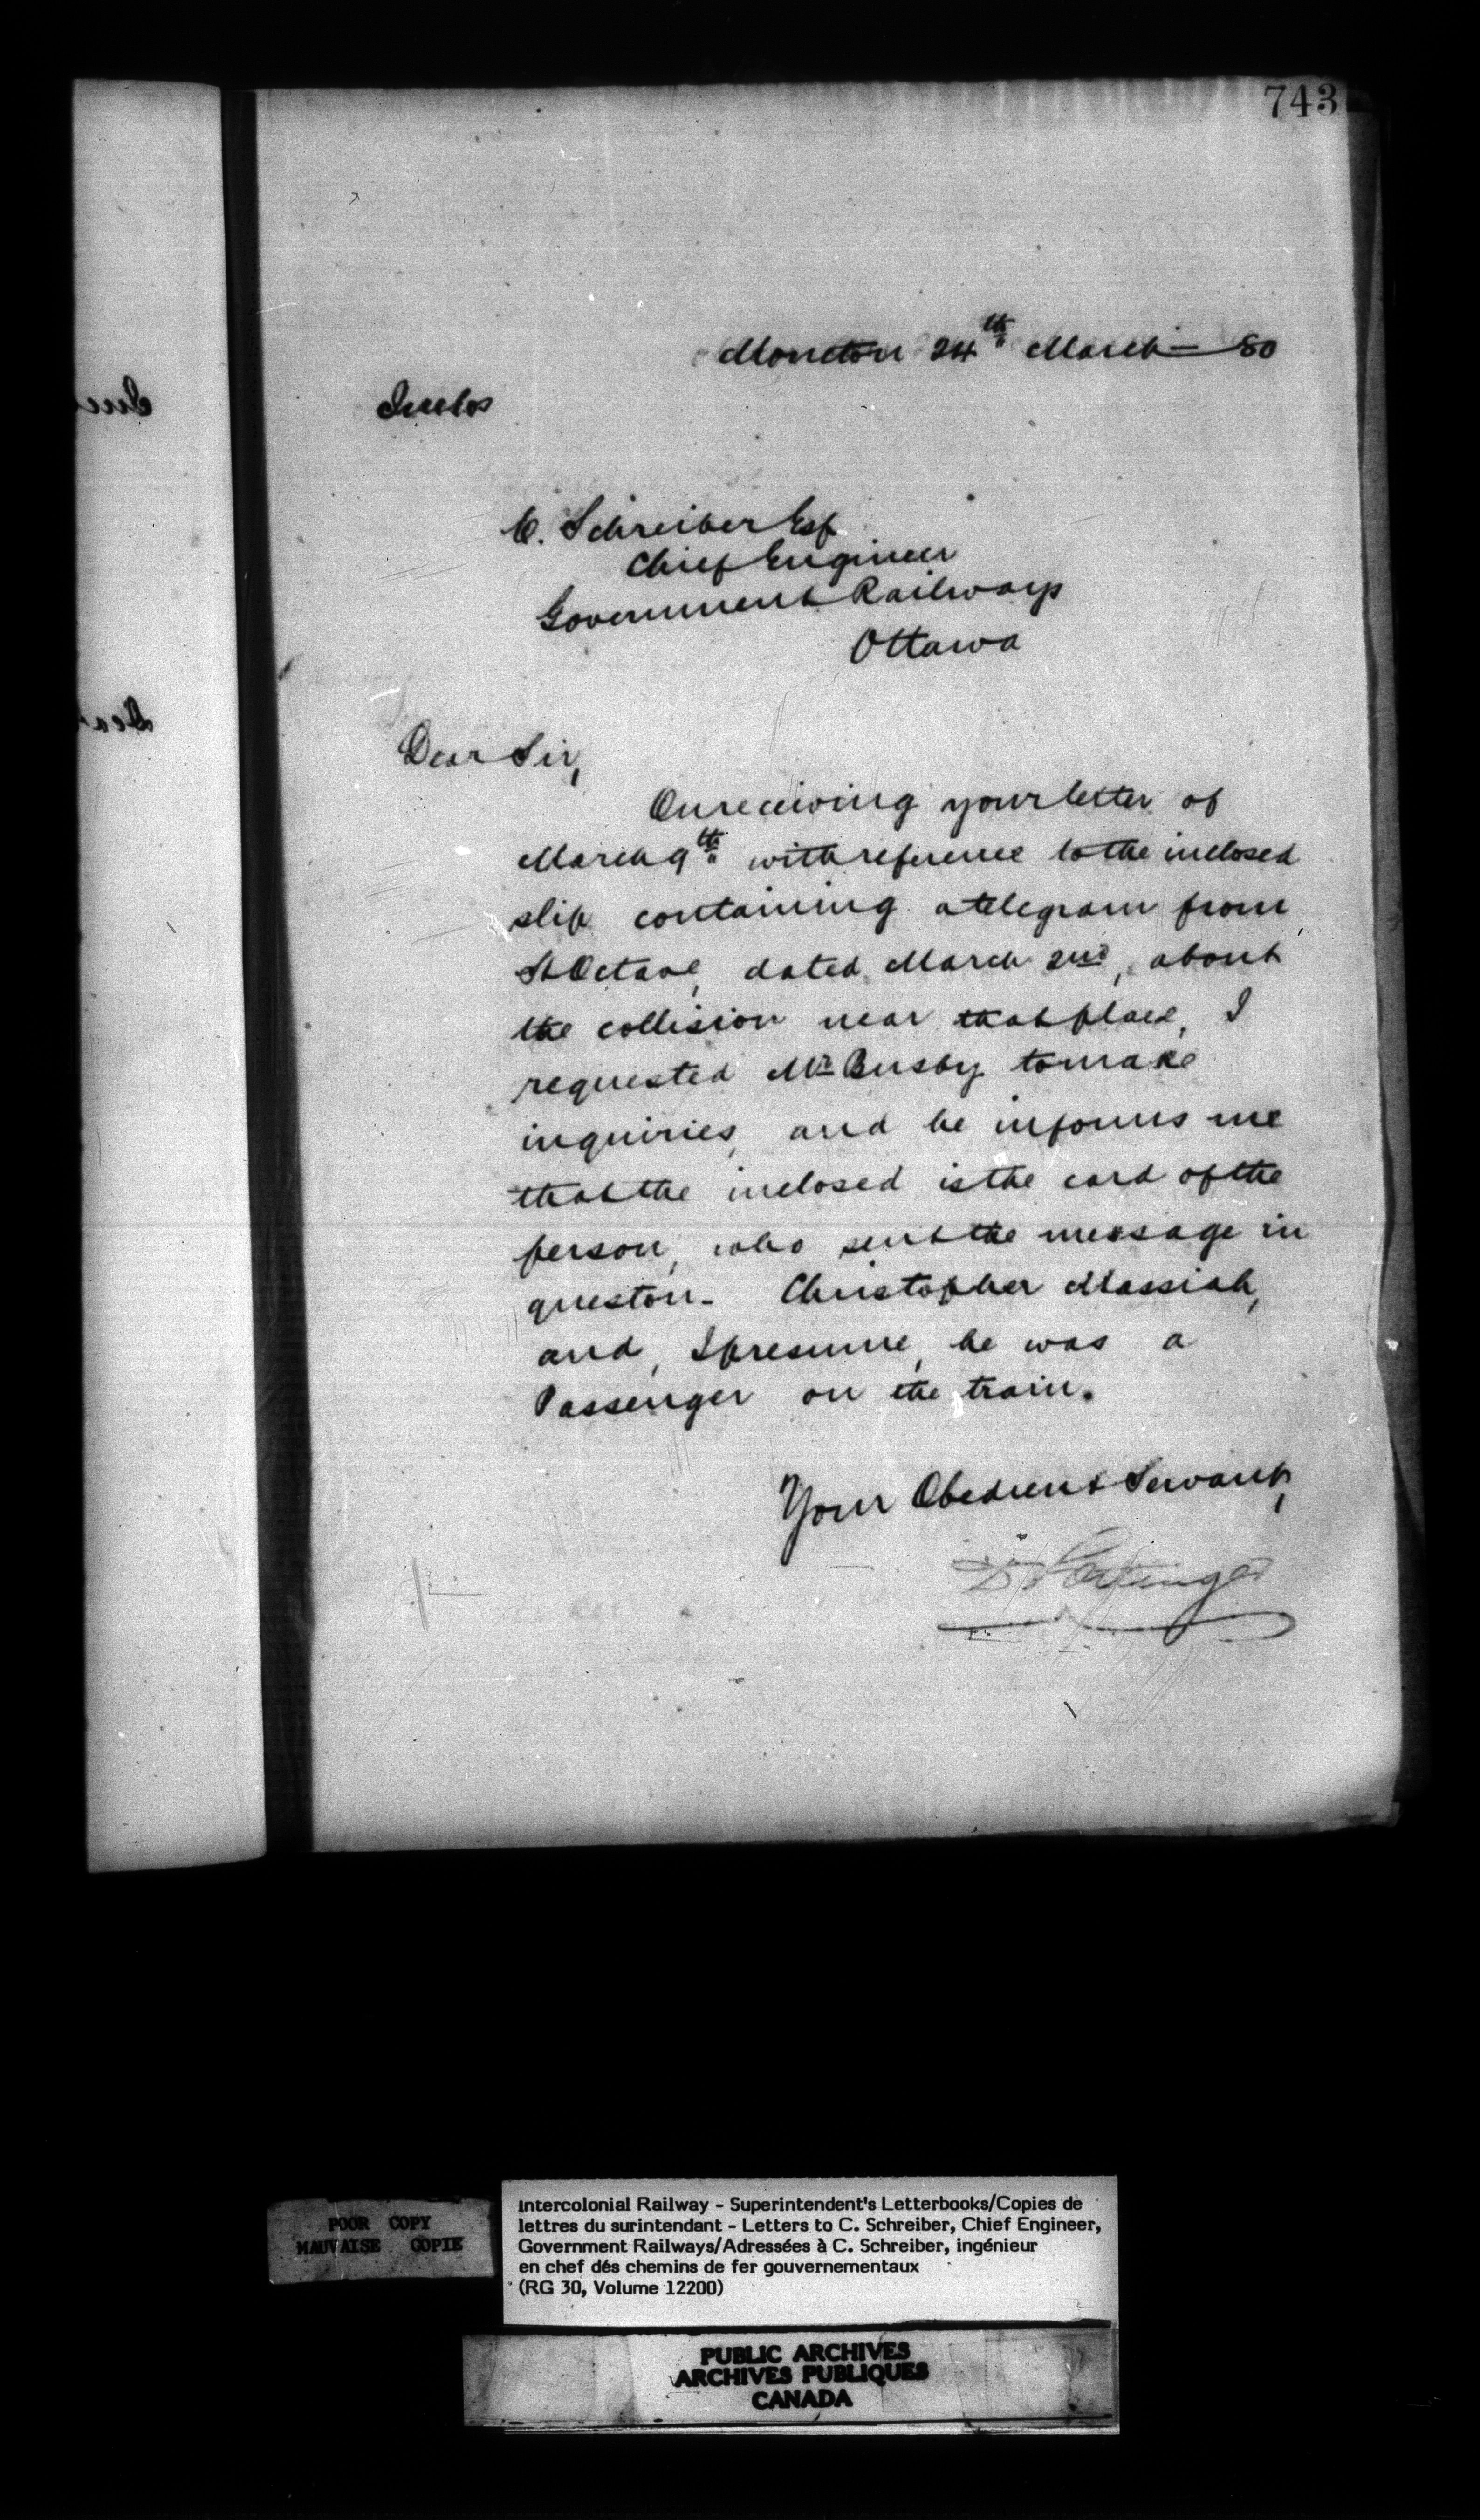 743
Moncton 24th March - 80
Inclos
C. Schreiber Esq
Chief Engineer
Government Railways
Ottawa
Dear Sir,
On receiving your letter of
March 9th with reference to the inclosed
slip containing a telegram from
St Octave, dated March 2nd, about
the collision near that place, I
requested Mr Busby to make
inquiries, and he informs me
that the inclosed is the card of the
person, who sent the message in
queston - Christopher Massiah,
and, I presume, he was a
Passenger on the train.
Your Obedient Servant,
D Pottinger
POOR COPY
MAUVAISE COPIE
Intercolonial Railway - Superintendent's Letterbooks/Copies de
lettres du surintendant - Letters to C. Schreiber, Chief Engineer,
Government Railways/Adressées à C. Schreiber, ingénieur
en chef dés chemins de fer gouvernementaux
(RG 30, Volume 12200)
PUBLIC ARCHIVES
ARCHIVES PUBLIQUES
CANADA